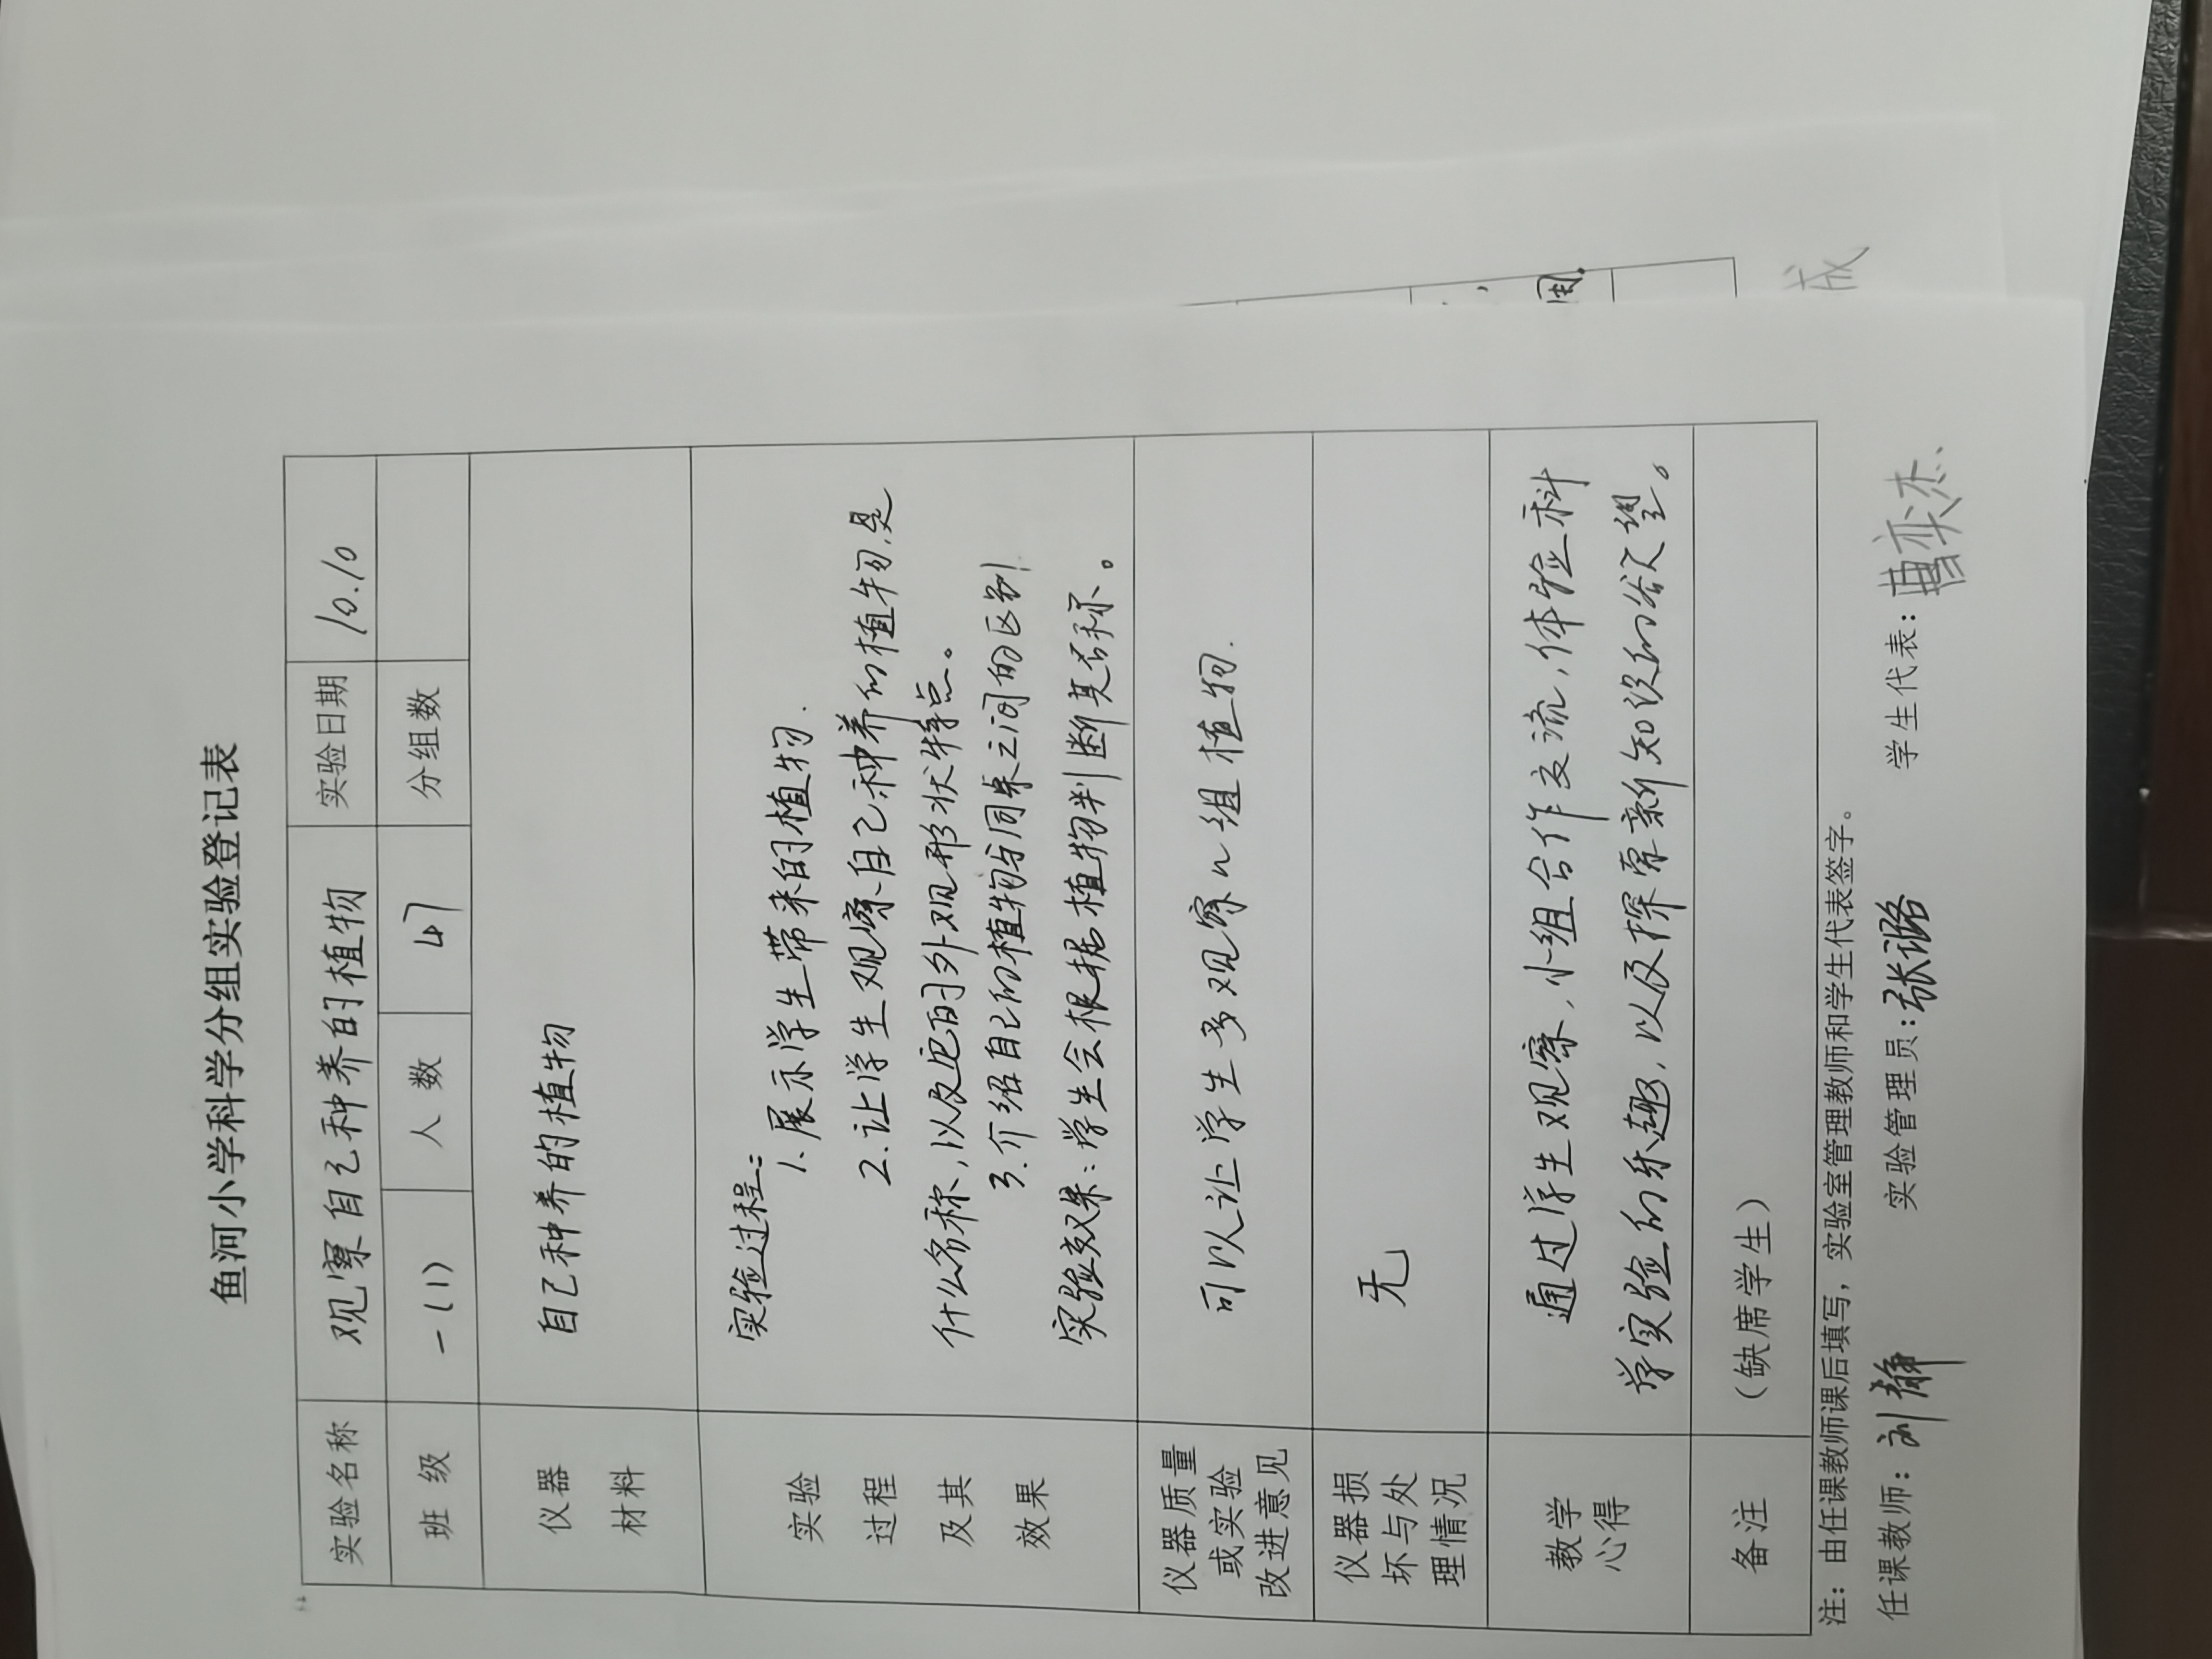 鱼河小学科学分组实验登记表
实验名称 观察自己种养的植物 实验日期 10.10
班级 一(1) 人数 47 分组数
仪器
材料
自己种养的植物
实验
过程
及其
效果
实验过程:
1.展示学生带来的植物.
2.让学生观察自己种养的植物,是
什么名称,以及它的外观形状特点。
3.介绍自己的植物与同桌之间的区别
实验效果:学生会根据植物判断其名称。
仪器质量
或实验
改进意见
可以让学生多观察几组植物.
仪器损
坏与处
理情况
无
教学
心得
通过学生观察,小组合作交流,体验科
学实验的乐趣,以及探索新知识的欲望。
备注 (缺席学生)
注:由任课教师课后填写,实验室管理教师和学生代表签字。
任课教师:刘静 实验管理员:张璐 学生代表:曹奕杰.
成